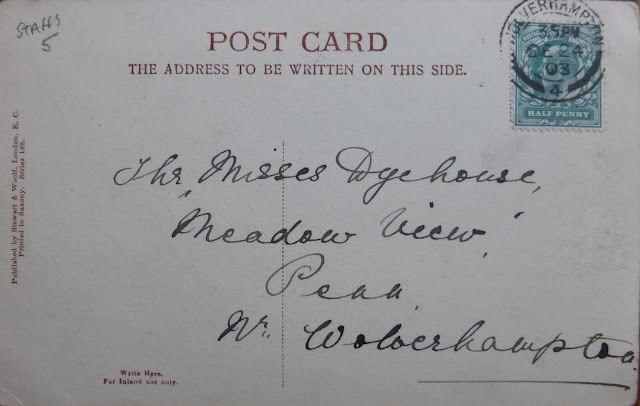 STAFFS
5
POST CARD
THE ADDRESS TO BE WRITTEN ON THIS SIDE.
WOLVERHAMPTON
3.5 PM
DE 24
03
4
HALF PENNY
The Misses Dyehouse,
Meadow View,
Penn
Nr. Wolverhampton.
Published by Stewart & Woolf, London, E. C.
Printed in Saxony. Series 188.
Write Here.
For Inland use only.